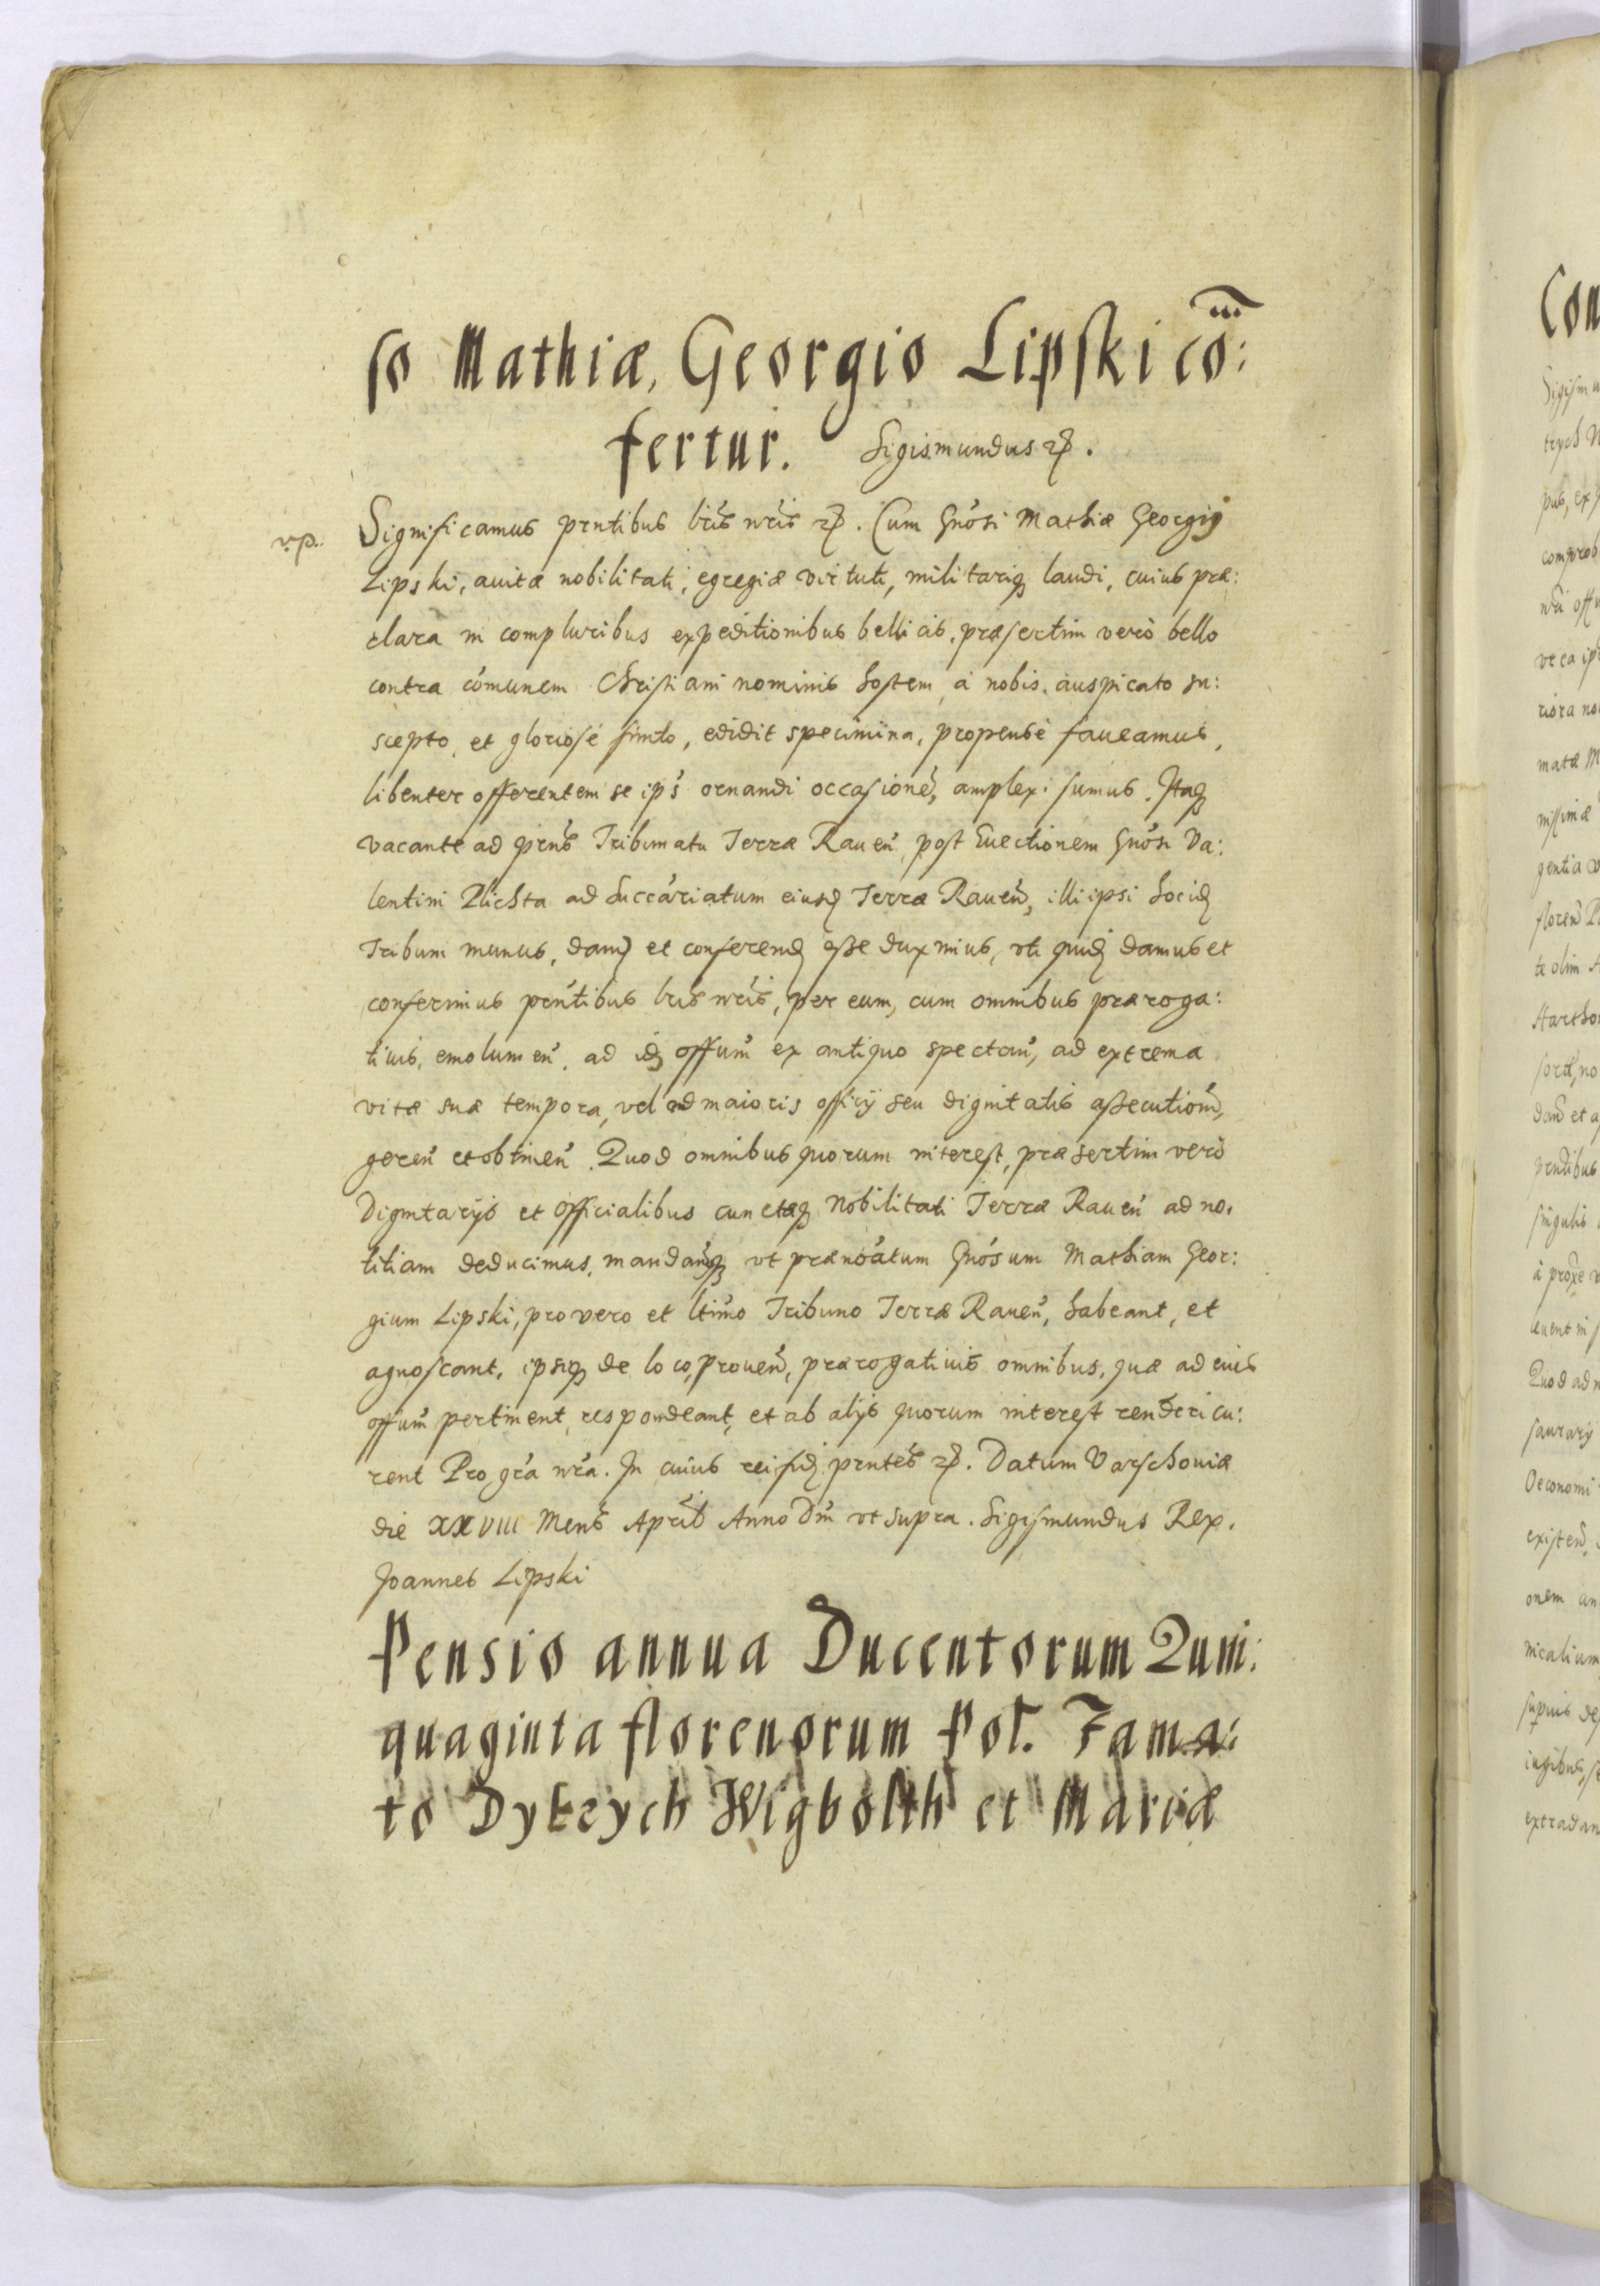 so Mathiæ, Georgio Lipski cõ:
fertur. Sigismundus etc.
Significamus prntibus lris nris etc. Cum Gnosi Mathiæ Georgij
Lipski, auitæ nobilitati, egregiæ virtuti, militariq laudi, cuius præ:
clara in compluribus expeditionibus bellicis, præsertim verò bello
contra cõmunem Christiani nominis hostem, à nobis auspicato su:
scepto, et gloriosè finito, edidit specimina, propensè faueamus,
libenter offerentem se ips' ornandi occasionẽ, amplexi sumus. Itaq
vacante ad prns Tribunatu Terræ Rauen, post Euectionem Gnosi Va:
lentini Plichta ad Succariatum eiusd Terræ Rauen, illi ipsi
Tribuni munus, dand et conferend esse duximus, uti quid damus et
conferimus prntibus lris nris, per eum, cum omnibus præroga:
tiuis, emolumen, ad id offum ex antiquo spectan, ad extrema
vitæ suæ tempora, vel ad maioris officij seu dignitatis assecutionẽ,
geren et obtinen. Quod omnibus quorum interest, præsertim verò
Dignitarijs et Officialibus cunctæq Nobilitati Terræ Rauen ad no:
titiam deducimus, mandamusq ut prænoatum Gnosum Mathiam Geor:
gium Lipski, pro vero et ltimo Tribuno Terræ Rauen, habeant, et
agnoscant, ipsiq de loco, prouen, prærogatiuis omnibus, quæ ad eius
offum pertinent, respondeant, et ab alijs quorum interest renderi cu:
rent Pro gra nra. In cuius rei fid prntes etc. Datum Varschouiæ
die XXVIII Mens April Anno Dm ut supra. Sigismundus Rex.
Joannes Lipski
Pensio annua Ducentorum Quin:
quaginta florenorum Pol. Fama:
to Dytrych Wigbolth et Mariæ